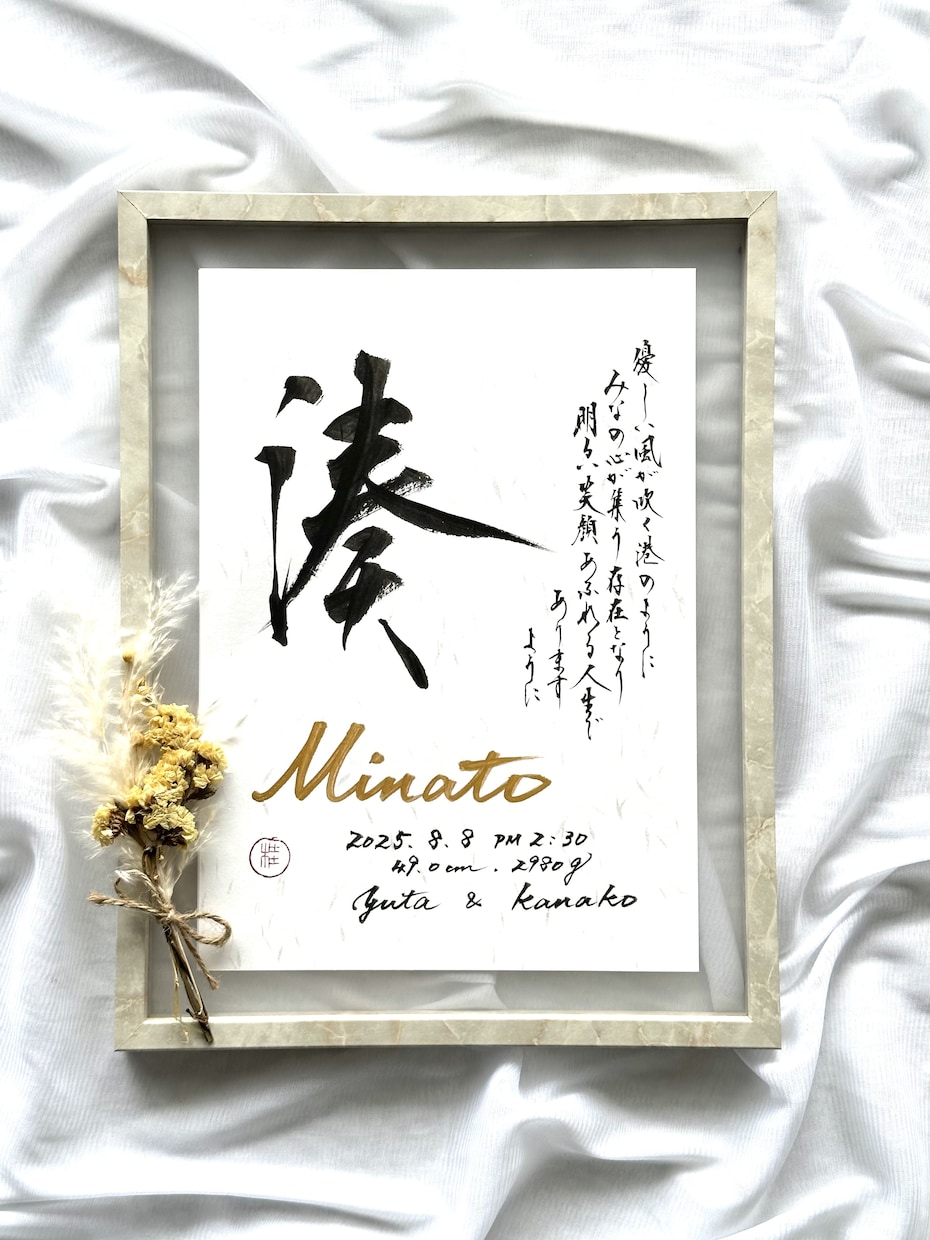 湊
優しい風が吹く港のように
みなの心が集う存在となり
明るい笑顔あふれる人生で
あります
ように
Minato
2025. 8. 8 PM 2:30
49.0cm. 2980g
Yuta & Kanako